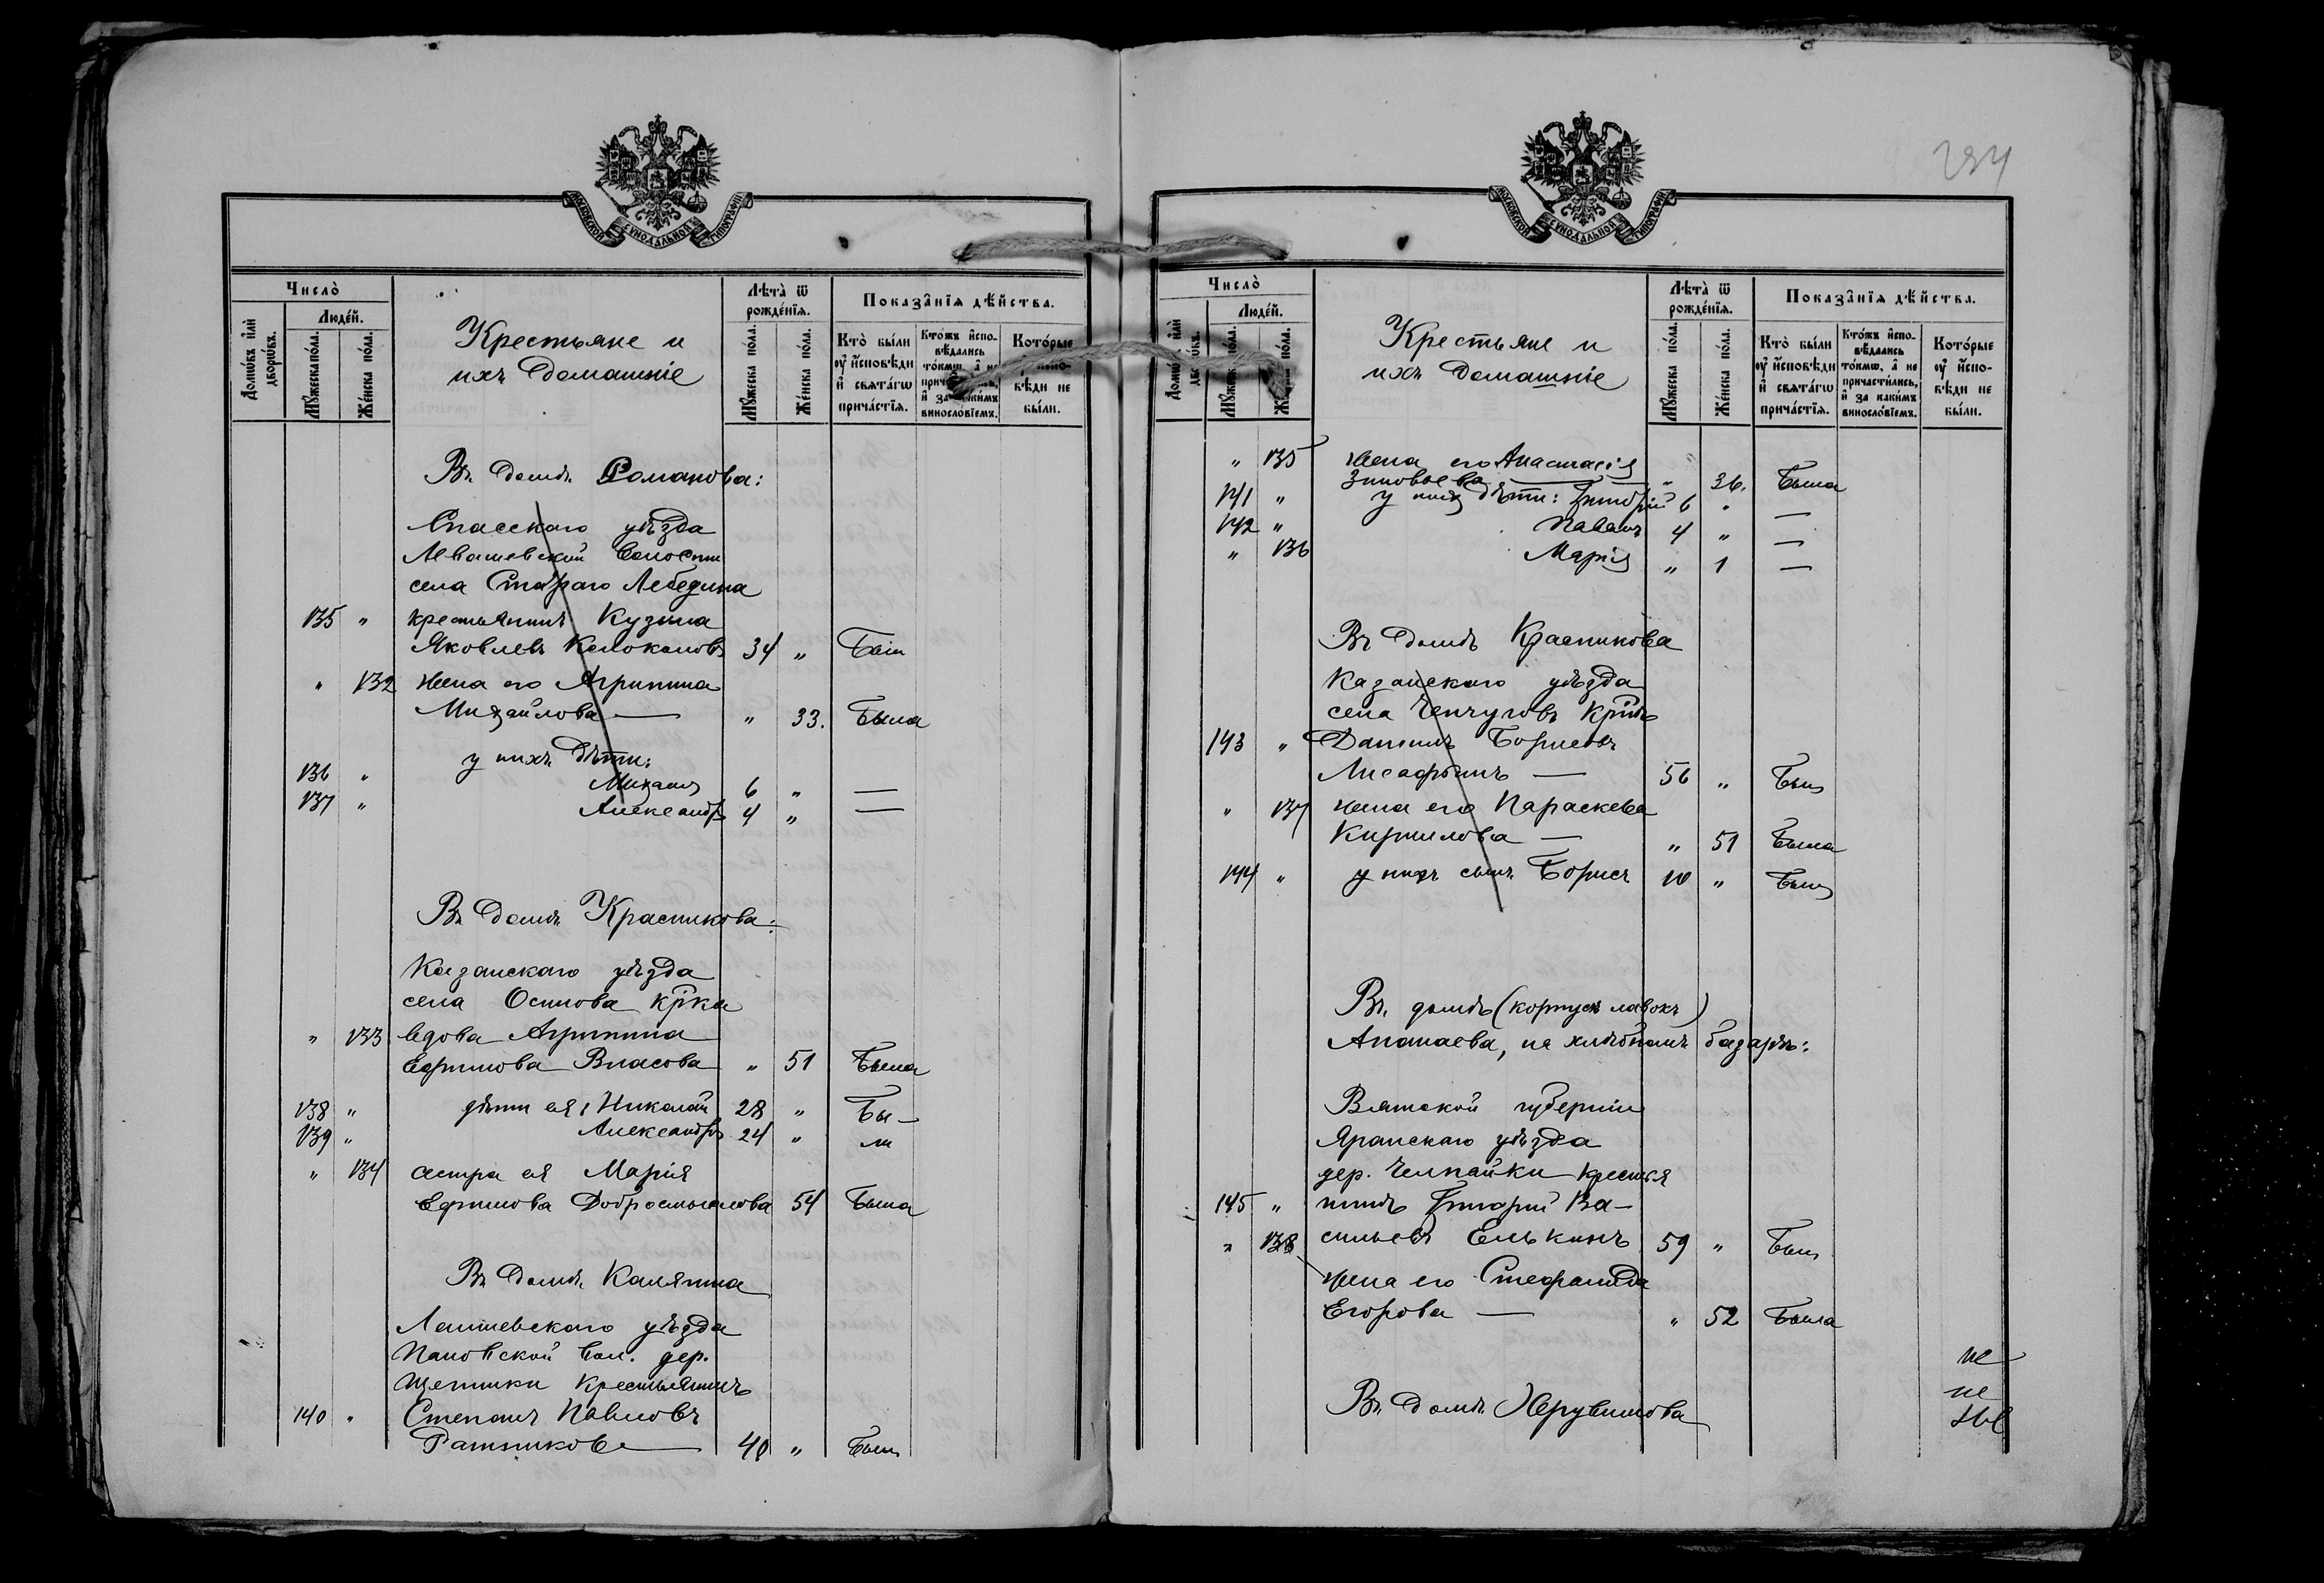 МОСКОВСКОЙ СѴНОДАЛЬНОЙ ТИПОГРАФІИ
Число̀
Домѡ́въ и҆лѝ дворѡ́въ.
Люде́й.
Мꙋ́жеска по́ла.
Же́нска по́ла.
Крестьяне и
ихъ домашніе
Лѣта̀ ѿ
рожде́нїѧ.
Мꙋ́жеска по́ла.
Же́нска по́ла.
Показа̑нїѧ дѣ́йства.
Кто̀ бы́ли
оу҆ и҆сповѣди
и҆ свѧта́гѡ
прича́стїѧ.
Кто́жъ и҆спо-
вѣ́дались
то́кмѡ, а҆ не
и҆ за
винослові́емъ.
Кото́рые
вѣди не
бы́ли.
Въ домѣ Романова:
Спасскаго уѣзда
Левашевской волости
села Стараго Лебедина
135 " крестьянинъ Кузьма
Яковлевъ Колоколовъ 34 " Былъ
" 132 жена его Агрипина
Михайлова — " 33. Была
у нихъ дѣти:
136 " Михаилъ 6 " —
137 " Александръ 4 " —
Въ домѣ Красникова:
Казанскаго уѣзда
села Осинова кр҃ка
" 133 вдова Агрипина
Ефимова Власова " 51 Была
138 " дѣти ея: Николай 28 " Бы-
139 " Александръ 24 " ли
" 134 сестра ея Марія
Ефимова Добросмыслова 54 Была
Въ домѣ Калянина
Лаишевскаго уѣзда
Пановской вол. дер.
Щепники крестьянинъ
140 " Степанъ Павловъ
Ратниковъ — 40 " Былъ
234
МОСКОВСКОЙ СѴНОДАЛЬНОЙ ТИПОГРАФІИ
Число̀
Люде́й.
Же́нска по́ла.
Крестьяне и
ихъ домашніе
Лѣта̀ ѿ
рожде́нїѧ.
Мꙋ́жеска по́ла.
Же́нска по́ла.
Показа̑нїѧ дѣ́йства.
Кто̀ бы́ли
оу҆ и҆сповѣди
и҆ свѧта́гѡ
прича́стїѧ.
Кто́жъ и҆спо-
вѣ́дались
то́кмѡ, а҆ не
причасти́лись,
и҆ за каки́мъ
винослові́емъ.
Кото́рые
оу҆ и҆спо-
вѣди не
бы́ли.
" 135 жена его Анастасія
Зиновьева — " 36. Была
141 " у нихъ дѣти: Григорій 6 " —
142 " Павелъ 4 " —
" 136 Марія " 1 —
Въ домѣ Красникова
Казанскаго уѣзда
села Ченчуговъ кр҃нъ
143 " Даніилъ Борисовъ
— 56 " Былъ
" 137 жена его Параскева
Кирилова — " 51 Была
144 " у нихъ сынъ Борисъ 10 " Былъ
Въ домѣ (корпусъ лавокъ)
Апанаева, на хлѣбномъ базарѣ:
Вятской губерніи
Яранскаго уѣзда
дер. Челпайки крестья
145 " нинъ Григорій Ва-
сильевъ Елькинъ 59 " Былъ
" 138 жена его Стефанида
Егорова — " 52 Была
Въ домѣ Херувимова